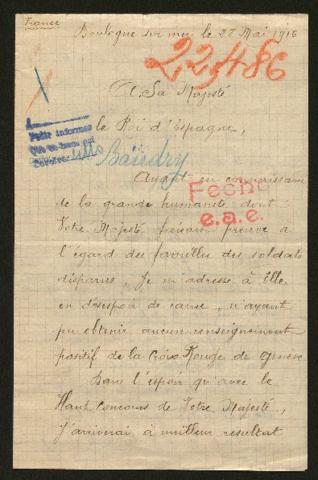 France
Boulogne sur mer le 27 Mai 1916
22,486
A Sa Majesté
le Roi d'Espagne,
Baudry
Ayant eu connaissance
de la grande humanité dont
Votre Majesté faisait preuve à
l'égard des familles des soldats
disparus, Je m'adresse à Elle
en désespoir de cause, n'ayant
pu obtenir aucun renseignement
positif de la Croix Rouge de Genève
Dans l'espoir qu'avec le
Haut Concours de Votre Majesté,
J'arriverai à meilleur résultat
Fecho
e.a.e.